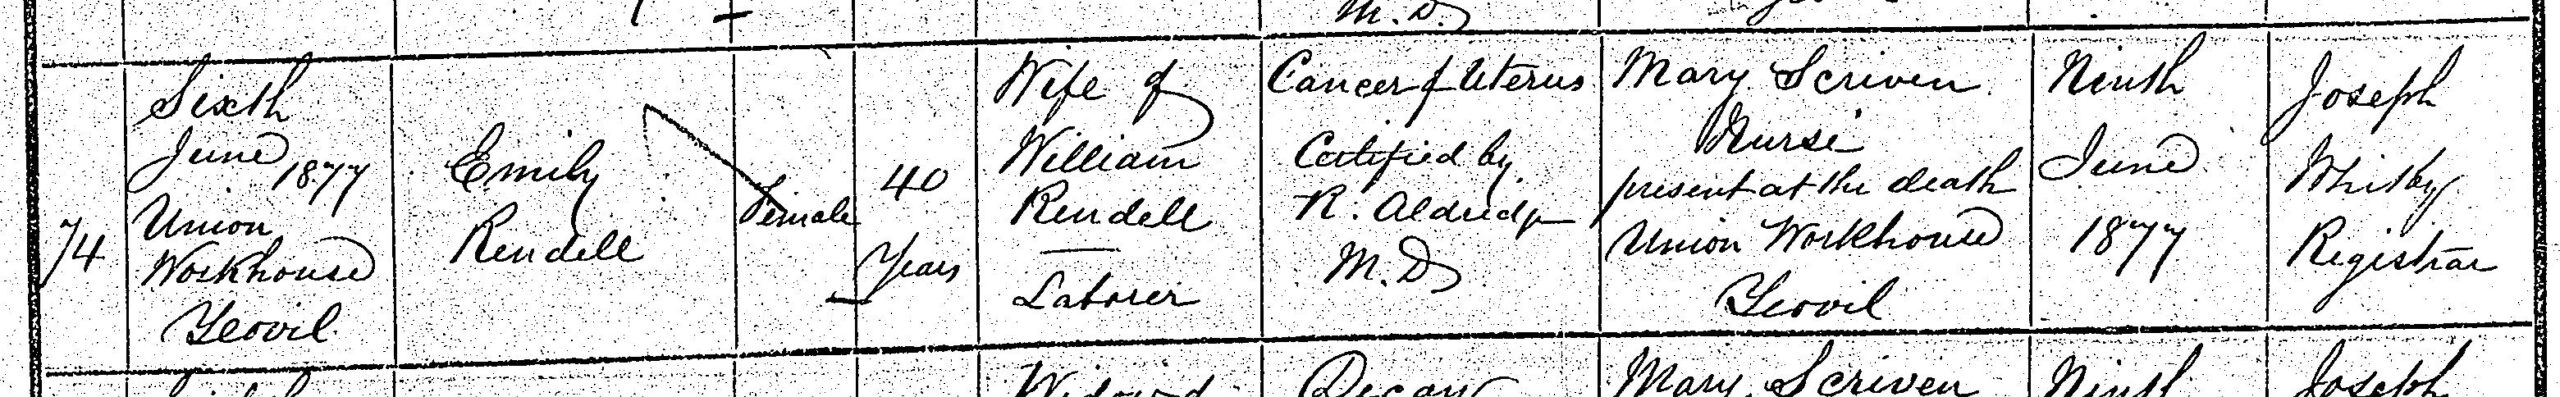 M.D.
74
Sixth
June 1877
Union
Workhouse
Yeovil
Emily
Rendell
Female
40
Years
Wife of
William
Rendell
Laborer
Cancer of Uterus
Certified by
R. Aldridge
M.D.
Mary Scriven
Nurse
present at the death
Union Workhouse
Yeovil
Ninth
June
1877
Joseph
Whitby
Registrar
Decay
Mary Scriven
Ninth
Joseph